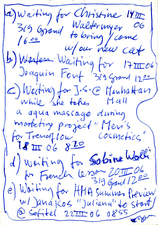 a) Waiting for Christine 14 III
319 Grand Waltzmeyer 06
16 00 to bring / come
w/ our new cat
b) Waiting for 17 III 06
Joaquin Fent 319 Grand 12 00
c) Waiting for J-S @ Manhattan
while she takes Mall
a aqua massage during
marketing project "Men's
for Trendflow Cosmetics"
18 III 06 8 20
d) waiting for Sabine
for French lesson 20 III 06
319 Grand 12 00
e) Waiting for HHA Summer Preview
w/ Janakos "Juliana" to start
@ Sofitel 22 III 06 08 55